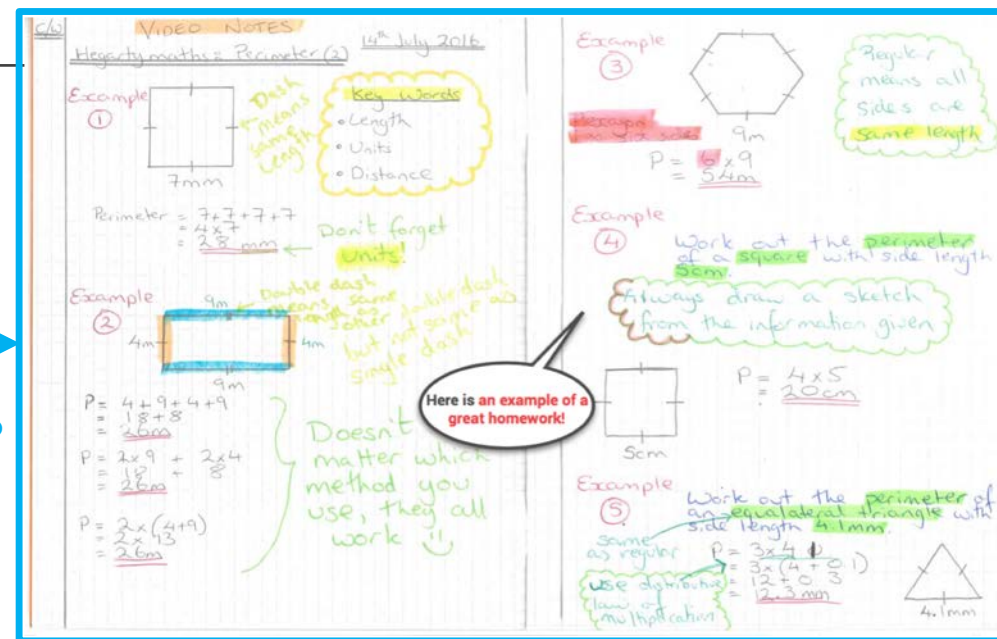 C/W
VIDEO NOTES
Hegarty maths = Perimeter (2)
14th July 2016
Example
1
Dash
means
same
length
7mm
Key Words
• Length
• Units
• Distance
Perimeter = 7+7+7+7
= 4×7
= 28 mm
Don't forget
units!
Example
2
9m
4m
4m
9m
Double dash
means same
as
other double dash
but not same as
single dash
P = 4+9+4+9
= 18+8
= 26m
P = 2×9 + 2×4
= 18 + 8
= 26m
P = 2×(4+9)
= 2×13
= 26m
Doesn't
matter which
method you
use, they all
work
Here is an example of a
great homework!
Example
3
Hexagon
six sides
9m
Regular
means all
sides are
same length
P = 6×9
= 54m
Example
4
Work out the perimeter
of a square with side length
5cm.
Always draw a sketch
from the information given
5cm
P = 4×5
= 20cm
Example
5
Work out the perimeter of
an equalateral triangle with
side length 4.1mm.
same
as regular
P = 3×4.1
= 3×(4+0.1)
= 12+0.3
= 12.3mm
use distributive
law of
multiplication
4.1mm